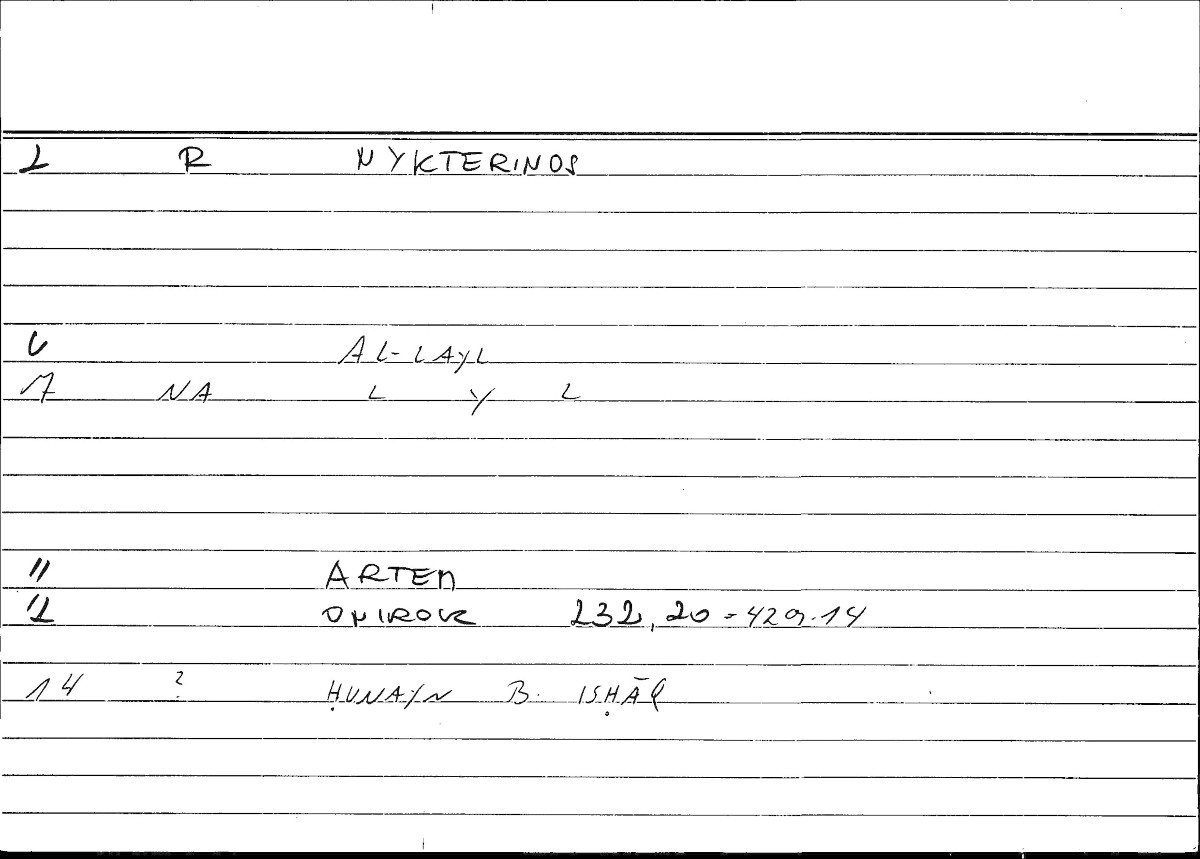 2 R NYKTERINOS
6 AL-LAYL
7 NA L Y L
11 ARTEM
12 ONIROK 232,20 = 429.14
14 ? ḤUNAYN B. ISḤĀQ